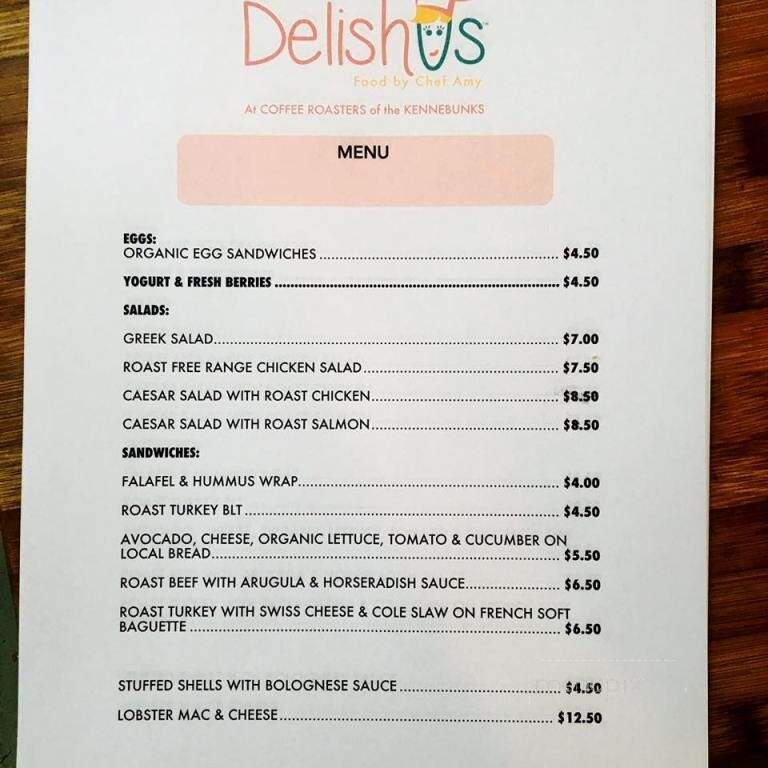 DelishUs™
Food by Chef Amy
At COFFEE ROASTERS of the KENNEBUNKS
MENU
EGGS:
ORGANIC EGG SANDWICHES ........ $4.50
YOGURT & FRESH BERRIES ........ $4.50
SALADS:
GREEK SALAD........ $7.00
ROAST FREE RANGE CHICKEN SALAD........ $7.50
CAESAR SALAD WITH ROAST CHICKEN........ $8.50
CAESAR SALAD WITH ROAST SALMON........ $8.50
SANDWICHES:
FALAFEL & HUMMUS WRAP........ $4.00
ROAST TURKEY BLT ........ $4.50
AVOCADO, CHEESE, ORGANIC LETTUCE, TOMATO & CUCUMBER ON
LOCAL BREAD........ $5.50
ROAST BEEF WITH ARUGULA & HORSERADISH SAUCE........ $6.50
ROAST TURKEY WITH SWISS CHEESE & COLE SLAW ON FRENCH SOFT
BAGUETTE ........ $6.50
STUFFED SHELLS WITH BOLOGNESE SAUCE ........ $4.50
LOBSTER MAC & CHEESE........ $12.50